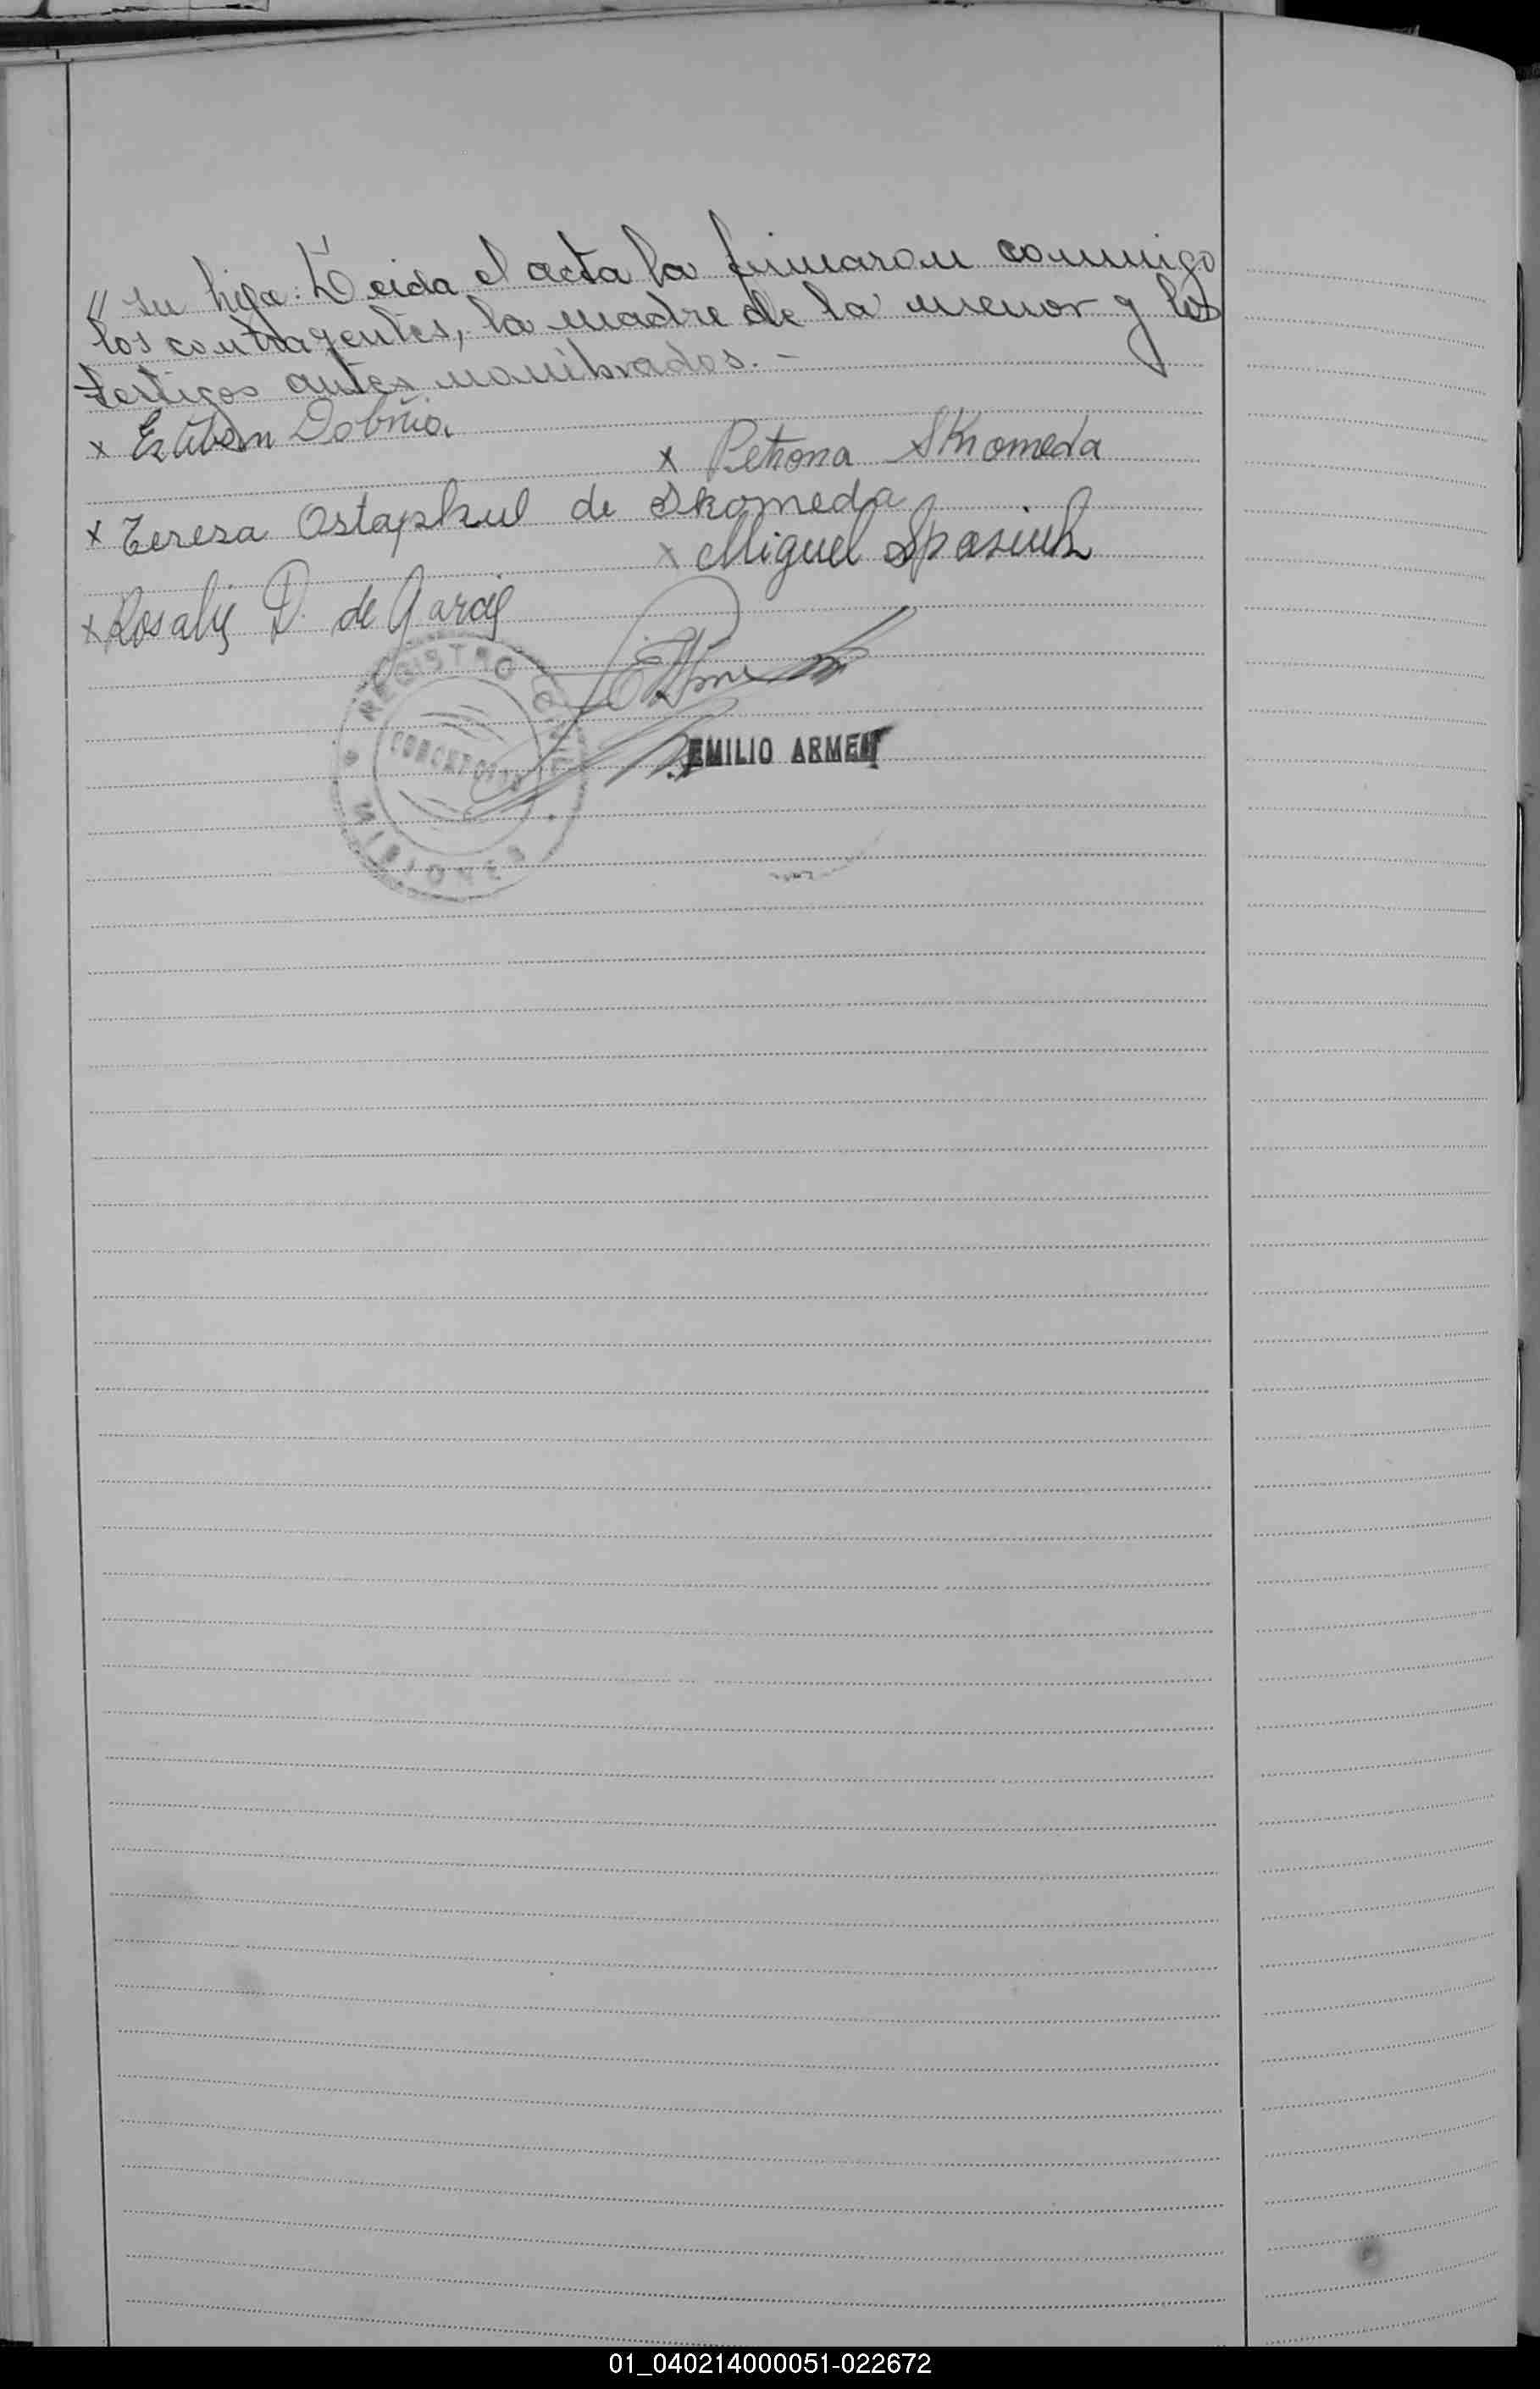 " su hija. Leida el acta la firmaron conmigo
los contrayentes, la madre de la menor y los
testigos antes nombrados. -
x Esteban Dobnia
x Petrona Skromeda
x Teresa Ostapkul de Skomeda
x Miguel Spasiuk
x Rosaly D. de Garay
REGISTRO CIVIL
MISIONES
EMILIO ARMEN
01_040214000051-022672